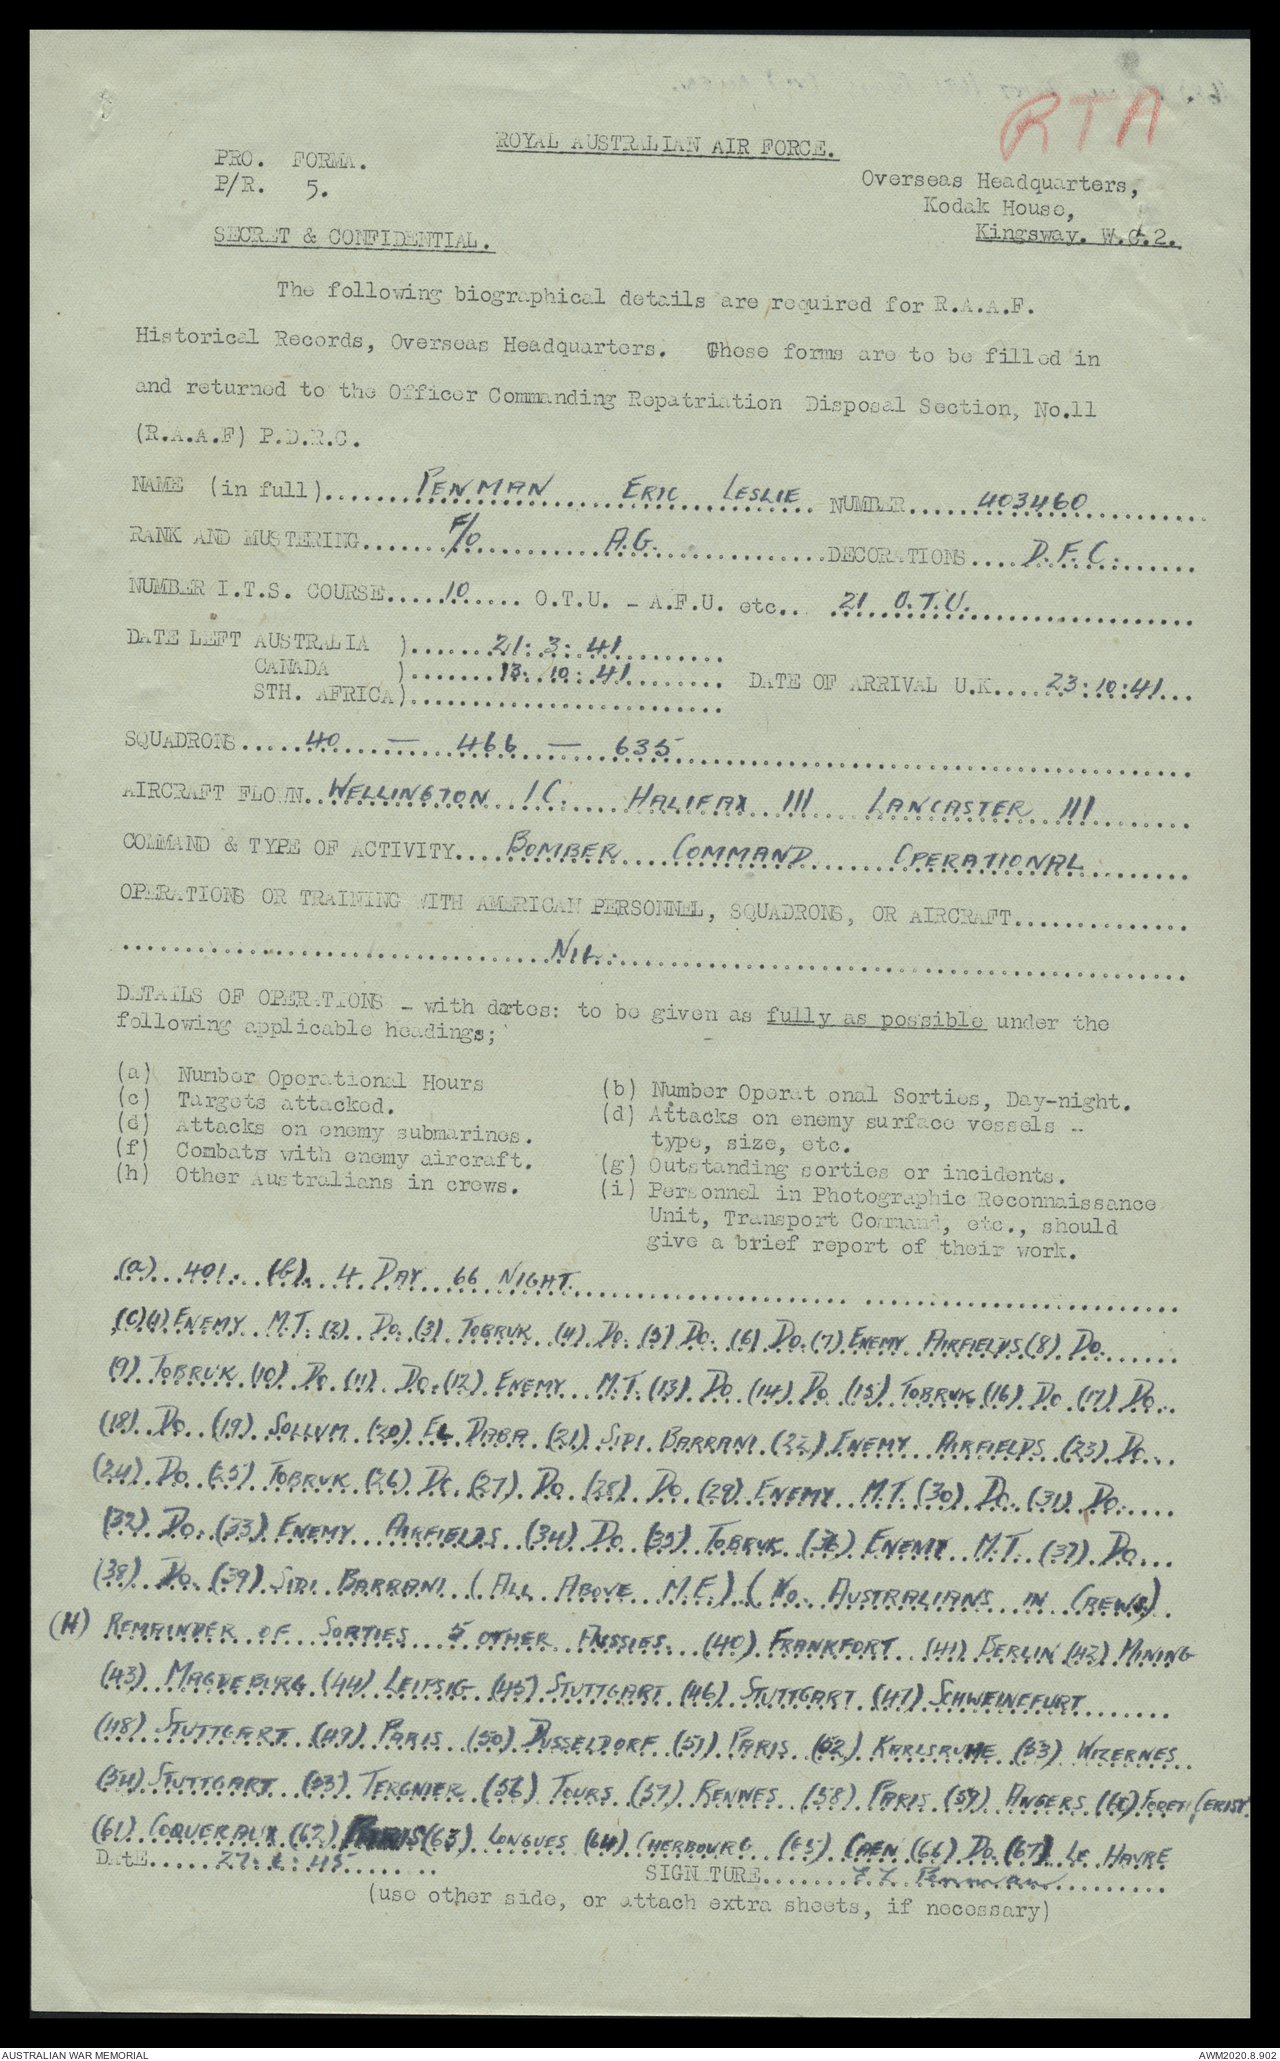 RTA
ROYAL AUSTRALIAN AIR FORCE.
PRO. FORMA.
P/R. 5.
Overseas Headquarters,
Kodak House,
Kingsway. W.C.2.
SECRET & CONFIDENTIAL.
The following biographical details are required for R.A.A.F.
Historical Records, Overseas Headquarters. These forms are to be filled in
and returned to the Officer Commanding Repatriation Disposal Section, No.11
(R.A.A.F) P.D.R.C.
NAME (in full)...... PENMAN ERIC LESLIE NUMBER..... 403460
RANK AND MUSTERING...... F/O A.G. DECORATIONS.... D.F.C.
NUMBER I.T.S. COURSE..... 10 ..... O.T.U. - A.F.U. etc... 21 O.T.U.
DATE LEFT AUSTRALIA )..... 21:3:41
CANADA )..... 13:10:41 DATE OF ARRIVAL U.K.... 23:10:41...
STH. AFRICA)
SQUADRONS..... 40 — 466 — 635
AIRCRAFT FLOWN.. WELLINGTON IC. HALIFAX III LANCASTER III
COMMAND & TYPE OF ACTIVITY.... BOMBER COMMAND OPERATIONAL
OPERATIONS OR TRAINING WITH AMERICAN PERSONNEL, SQUADRONS, OR AIRCRAFT..............
NIL.
DETAILS OF OPERATIONS - with dates: to be given as fully as possible under the
following applicable headings;
(a) Number Operational Hours
(b) Number Operat onal Sorties, Day-night.
(c) Targets attacked.
(d) Attacks on enemy surface vessels -
type, size, etc.
(d) Attacks on enemy submarines.
(f) Combats with enemy aircraft.
(g) Outstanding sorties or incidents.
(h) Other Australians in crews.
(i) Personnel in Photographic Reconnaissance
Unit, Transport Command, etc., should
give a brief report of their work.
(a) 401. (b). 4 DAY 66 NIGHT.
(C)(1) ENEMY M.T. (2) DO. (3) TOBRUK (4) DO. (5) DO. (6) DO. (7) ENEMY AIRFIELDS (8) DO.
(9) TOBRUK (10) DO (11) DO. (12) ENEMY M.T. (13) DO (14) DO (15) TOBRUK (16) DO (17) DO
(18) DO (19) SOLLUM (20) EL DABA (21) SIDI BARRANI (22) ENEMY AIRFIELDS (23) DO
(24) DO (25) TOBRUK (26) DO (27) DO (28) DO (29) ENEMY M.T. (30) DO (31) DO
(32) DO. (33) ENEMY AIRFIELDS (34) DO (35) TOBRUK (36) ENEMY M.T. (37) DO
(38) DO (39) SIDI BARRANI (ALL ABOVE M.E.) (NO AUSTRALIANS IN CREWS).
(H) REMAINDER OF SORTIES 5 OTHER AUSSIES. (40) FRANKFORT (41) BERLIN (42) MINING
(43) MAGDEBURG (44) LEIPSIG (45) STUTTGART (46) STUTTGART (47) SCHWEINEFURT
(48) STUTTGART (49) PARIS (50) DUSSELDORF (51) PARIS (52) KARLSRUHE (53) WIZERNES
(54) STUTTGART (55) TERGNIER (56) TOURS (57) RENNES (58) PARIS (59) ANGERS (60) FORET CERISY
(61) COQUERAUX (62) PARIS (63) LONGUES (64) CHERBOURG (65) CAEN (66) DO (67) LE HAVRE
DATE..... SIGNATURE....... E L Penman
(use other side, or attach extra sheets, if necessary)
AUSTRALIAN WAR MEMORIAL
AWM2020.8.902